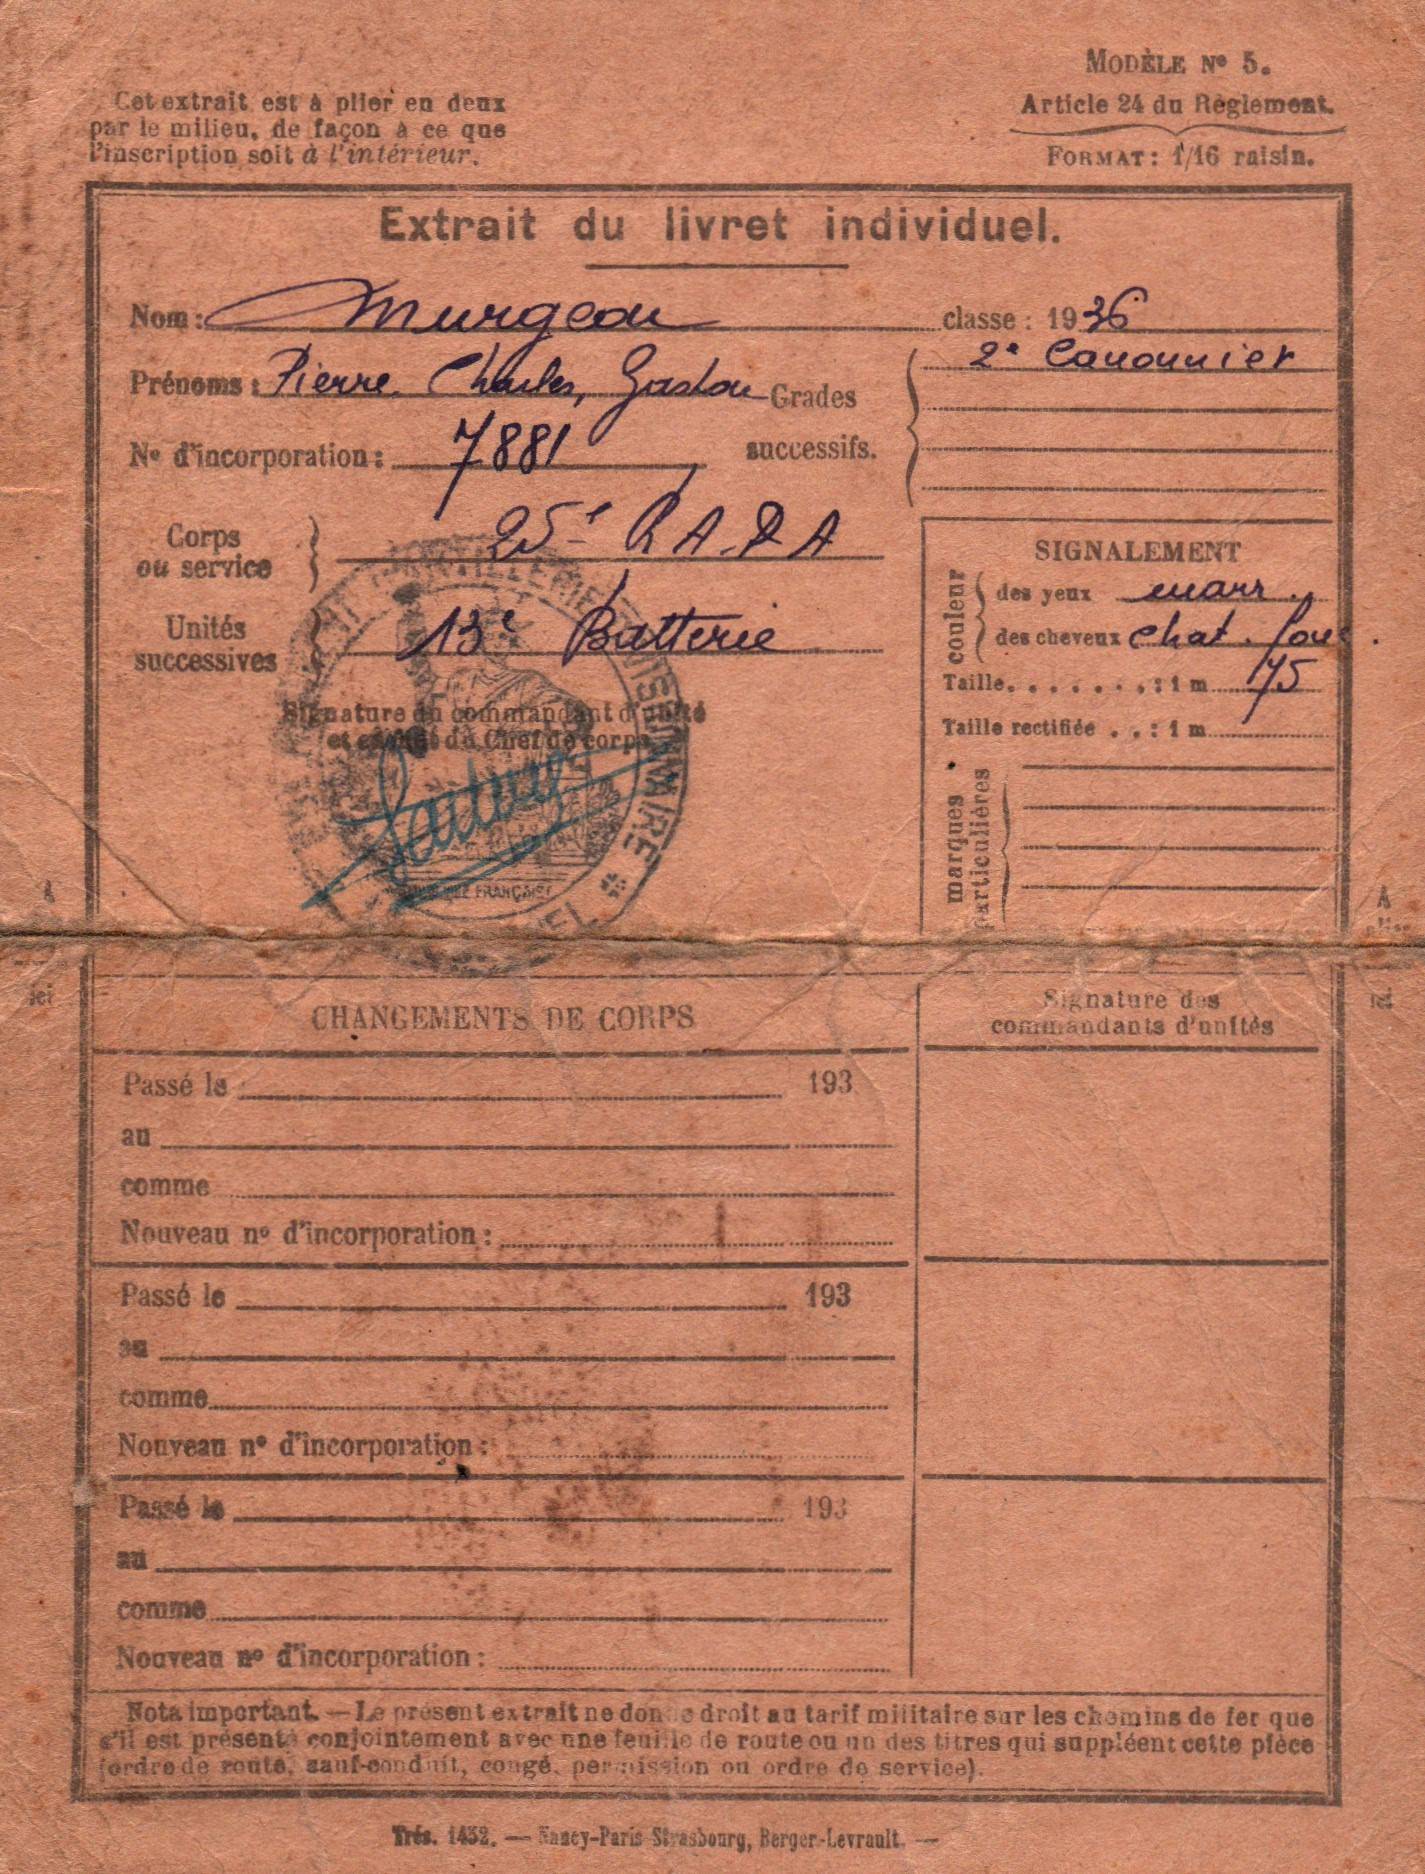 MODÈLE Nº 5.
Cet extrait est à plier en deux
par le milieu, de façon à ce que
l'inscription soit à l'intérieur.
Article 24 du Règlement.
FORMAT : 1/16 raisin.
Extrait du livret individuel.
Nom : Murgeon classe : 1936
Prénoms : Pierre, Charles, Gaston
Grades successifs. 2e Canonnier
Nº d'incorporation : 7881
Corps ou service 25e R A. D A
Unités successives 13e Batterie
Signature du commandant d'unité
et cachet du Chef de corps
RÉPUBLIQUE FRANÇAISE
SIGNALEMENT
couleur
des yeux marr.
des cheveux chat. fonc.
Taille. . . . . . . : 1 m 75
Taille rectifiée . . : 1 m
marques particulières
A A
plier
ici ici
CHANGEMENTS DE CORPS
Signature des
commandants d'unités
Passé le 193
au
comme
Nouveau nº d'incorporation :
Passé le 193
au
comme
Nouveau nº d'incorporation :
Passé le 193
au
comme
Nouveau nº d'incorporation :
Nota important. — Le présent extrait ne donne droit au tarif militaire sur les chemins de fer que
s'il est présenté conjointement avec une feuille de route ou un des titres qui suppléent cette pièce
(ordre de route, sauf-conduit, congé, permission ou ordre de service).
Trés. 1432. — Nancy-Paris-Strasbourg, Berger-Levrault. —